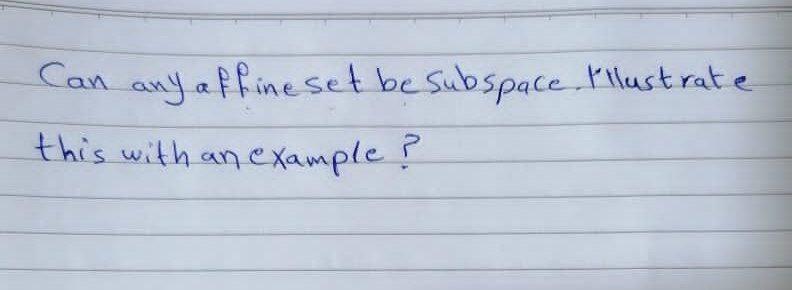 Can any affine set be subspace. Illustrate
this with an example ?